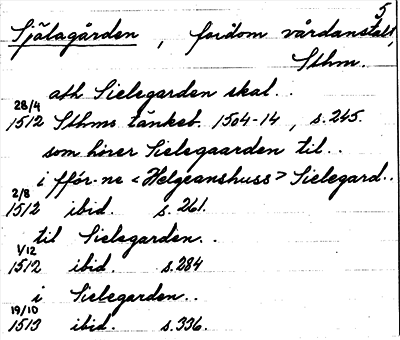 5
Själagården, fordom vårdanstalt,
Sthm.
ath Sielegarden skal..
28/4
1512 Sthms tänkeb. 1504-14, s. 245.
som hörer Sielegaarden til..
i ffór-ne <Helgeanshuss> Sielegard..
2/8
1512 ibid. s. 261.
til Sielegarden..
1/12
1512 ibid. s. 284
i Sielegarden..
19/10
1513 ibid. s. 336.